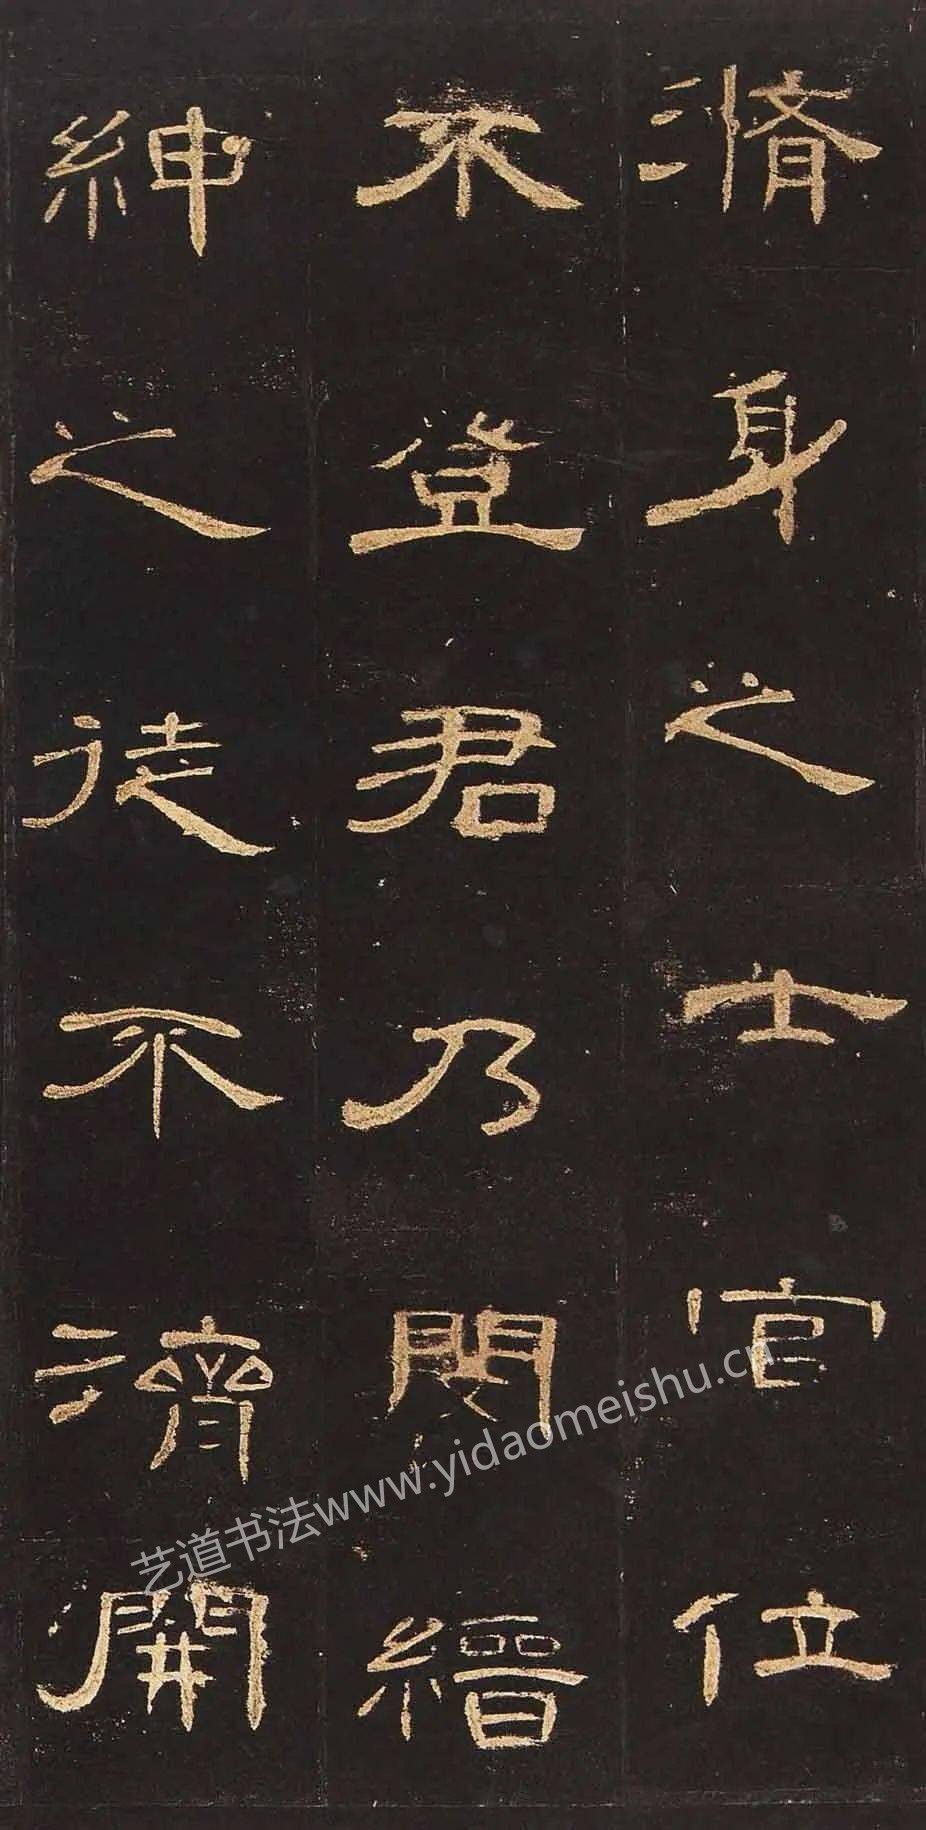 脩身之士官位
不登君乃閔縉
紳之徒不濟開
艺道书法www.yidaomeishu.cn